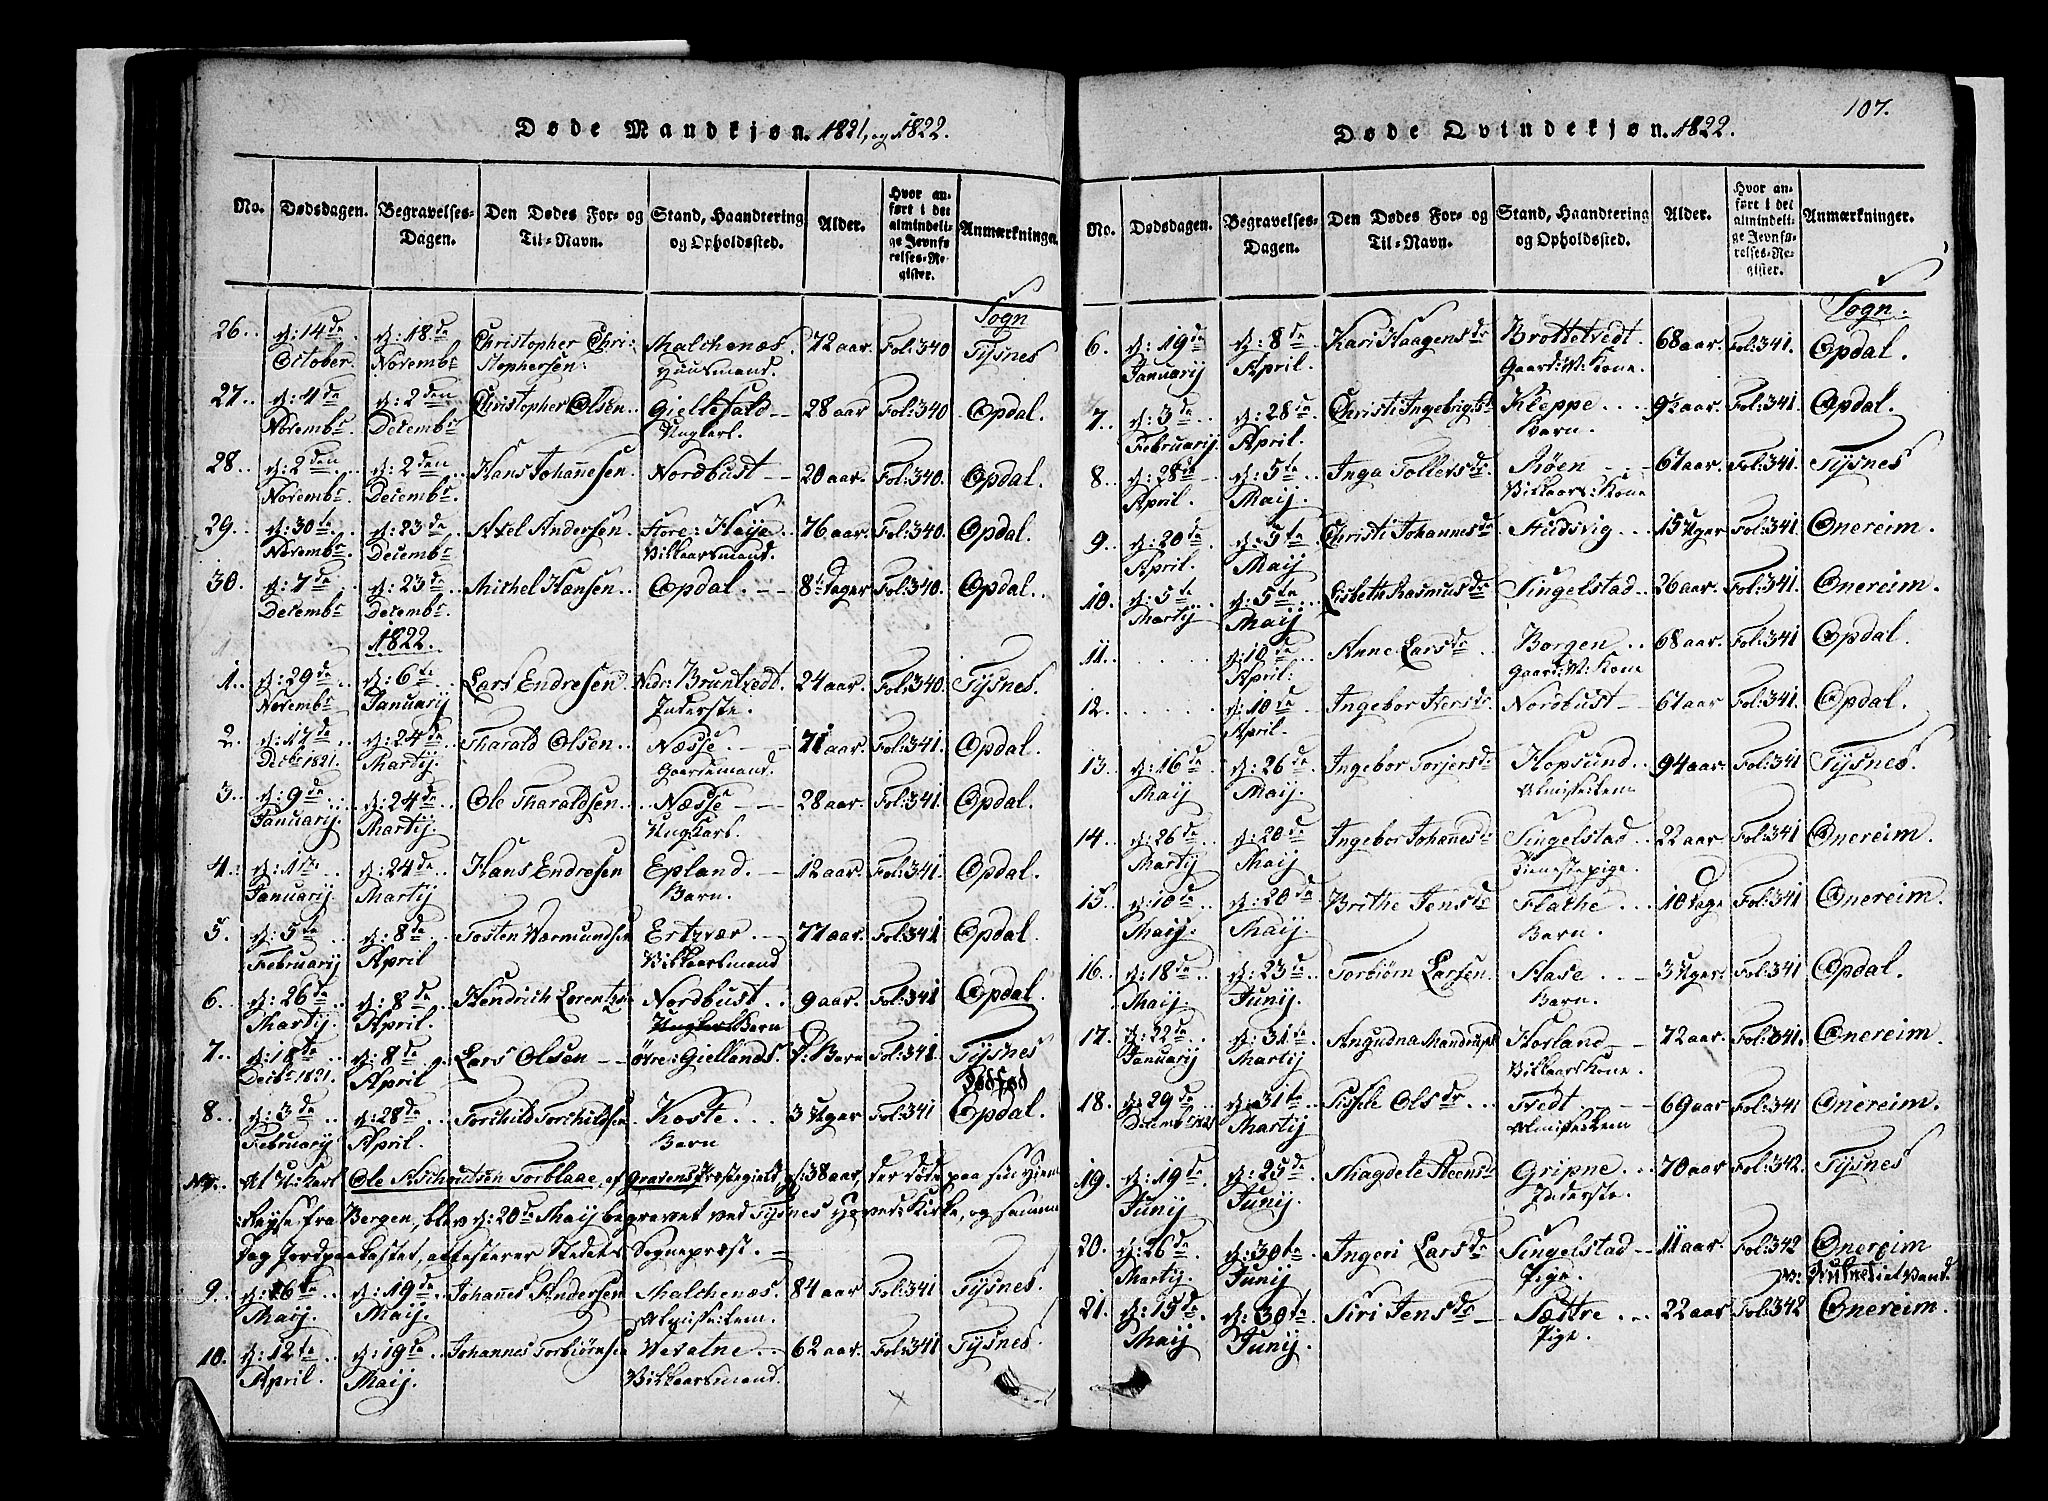 Døde Mandkjøn. 1821, og 1822.
No. Dødsdagen. Begravelses-Dagen. Den Dødes For- og Til-Navn. Stand, Haandtering og Opholdssted. Alder. Hvor anført i det almindelige Jevnførelses-Register. Anmærkninger.
Sogn
26. d: 14de d: 18de Christopher Chri- Malchenæs. 72 aar. Fol: 340 Tysnes
October. Novembr stophersen. Huusmand.
27. d: 4de d: 2den Christopher Olsen Giellefald 28 aar Fol: 340 Opdal.
Novembr. Decembr Ungkarl.
28. d: 2den d: 2den Hans Johannesen Nordbust 20 aar. Fol: 340. Opdal.
Novembr. Decembr.
29. d: 30te d: 23de Axel Andersen Store: Haÿe 76 aar. Fol: 340. Opdal.
Novembr. Decembr. Vilkaarsmand.
30. d: 7de d: 23de Michel Hansen Opdal. 8t Dager Fol: 340. Opdal.
Decembr Decembr.
1822.
1. d: 29de d: 6te Lars Endresen Nedr: Bruntvedt 24 aar. Fol: 340. Tysnes.
Novembr Januarij Inderste.
2. d: 17de d: 24de Tharald Olsen Næsse 71 aar. Fol: 341. Opdal.
Decbr 1821. Martij. Gaardmand.
3. d: 9de d: 24de Ole Tharaldsen Næsse 28 aar. Fol: 341. Opdal.
Januarij. Martij. Ungkarl.
4. d: 17de d: 24de Hans Endresen Epland. 12 aar. Fol: 341. Opdal.
Januarij. Martij Barn.
5. d: 5te d: 8de Tosten Varmundsen Ertzvær 77 aar. Fol: 341 Opdal.
Februarij April Vilkaarsmand
6. d: 26de d: 8de Hendrich Lorentzen Nordbust 9 aar. Fol: 341 Opdal.
Martij. April. Ungkarl Barn
7. d: 18de d: 8de Lars Olsen Øvre: Giellands. Barn Fol: 341. Tysnes
Decbr 1821. April Dødfød
8. d: 3de d: 28de Torchild Torchildsen Koste 3 Uger Fol: 341 Opdal.
Februarij April. Barn
At U: Karl Ole Torblaae, af Gravens Præstegield, d: 38 aar, der døde paa sin Hjem-
Reyse fra Bergen, blev d: 20de Maij begravet ved Tysnes Hoved: Kirke, og samme
Dag Jordpaakastet, attesterer Stedets Sognepræst.
9. d: 6te d: 19de Johannes Andersen Malchenæs. 84 aar Fol: 341 Tysnes.
Maij. Maij. Almislem.
10. d: 12te d: 19de Johannes Torbiørnsen Vevatne 62 aar. Fol: 341 Tysnes.
April. Maij. Vilkaarsmand.
107.
Døde Qvindekjøn. 1822.
No. Dødsdagen. Begravelses-Dagen. Den Dødes For- og Til-Navn. Stand, Haandtering og Opholdssted. Alder. Hvor anført i det almindelige Jevnførelses-Register. Anmærkninger.
Sogn.
6. d: 19de d: 8de Kari Haagensdr Brottetvedt 68 aar. Fol: 341. Opdal.
Januarij April. Gaard: M: Kone.
7. d: 3de d: 28de Christi Ingebrigtsd Kleppe 9½ aar. Fol: 341. Opdal.
Februarij. April. Barn.
8. d: 28de d: 5te Inga Tollevsdr Røen 67 aar. Fol: 341. Tysnes
April. Maij. Vilkaars: Kone
9. d: 20de d: 5te Christi Johannesdr Hudsvig 15 Uger Fol: 341 Onereim.
April. Maij
10. d: 5te d: 5te Lisbeth Rasmusdr Singelstad 26 aar. Fol: 341. Onereim.
Martij Maij
11. d: 10de Anne Larsdr Borgen 68 aar. Fol: 341 Opdal.
April: Gaard: M: Kone
12. d: 10de Ingebor Iversdr Nordbust 67 aar Fol: 341. Opdal.
April.
13. d: 16de d: 26de Ingebor Torjersdr Hopsund 94 aar. Fol: 341. Tysnes.
Maij Maij. Almislem
14. d: 26de d: 20de Ingebor Johannesdr Singelstad 22 aar. Fol: 341 Onereim.
Martij Maij. Tienestepige.
15. d: 10de d: 20de Brithe Jensdr Flathe 10 Dage Fol: 341 Onereim.
Maij. Maij. Barn.
16. d: 18de d: 23de Torbiørn Larsen. Aase 3 Uger. Fol: 341 Opdal.
Maij. Junij. Barn.
17. d: 22de d: 31te Angudna Mandrupsd Horland 72 aar. Fol: 341. Onereim.
Januarij Martij Vilkaars Kone.
18. d: 29de d: 31te Sissele Olsdr Tvedt 69 aar Fol: 341 Onereim.
Decembr 1821 Martij Almislem
19. d: 19de d: 25de Magdele Steensdr Gripne 70 aar. Fol: 342. Tysnes
Junij Junij. Inderste.
20. d: 26de d: 30te Ingeri Larsdr Singelstad 11 aar. Fol: 342 Onereim
Martij. Junij. Pige.
21. d: 15de d: 30te Siri Jensdr Sættre 22 aar Fol: 342 Onereim.
Maij Junij. Pige.